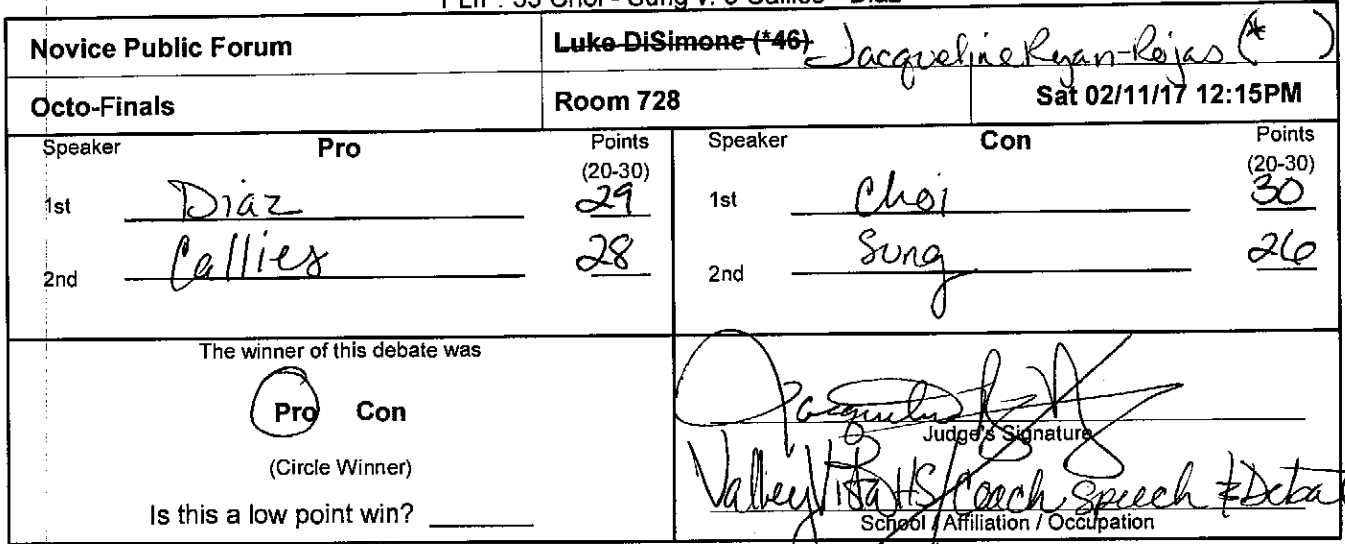 Novice Public Forum
Luke DiSimone (*46) Jacqueline Ryan-Rojas (* )
Octo-Finals Room 728 Sat 02/11/17 12:15PM
Speaker Pro Points (20-30)
1st Diaz 29
2nd Callies 28
Speaker Con Points (20-30)
1st Choi 30
2nd Sung 26
The winner of this debate was
Pro Con
(Circle Winner)
Is this a low point win? ______
Judge's Signature
Valley Vista HS / Coach Speech & Debat
School / Affiliation / Occupation